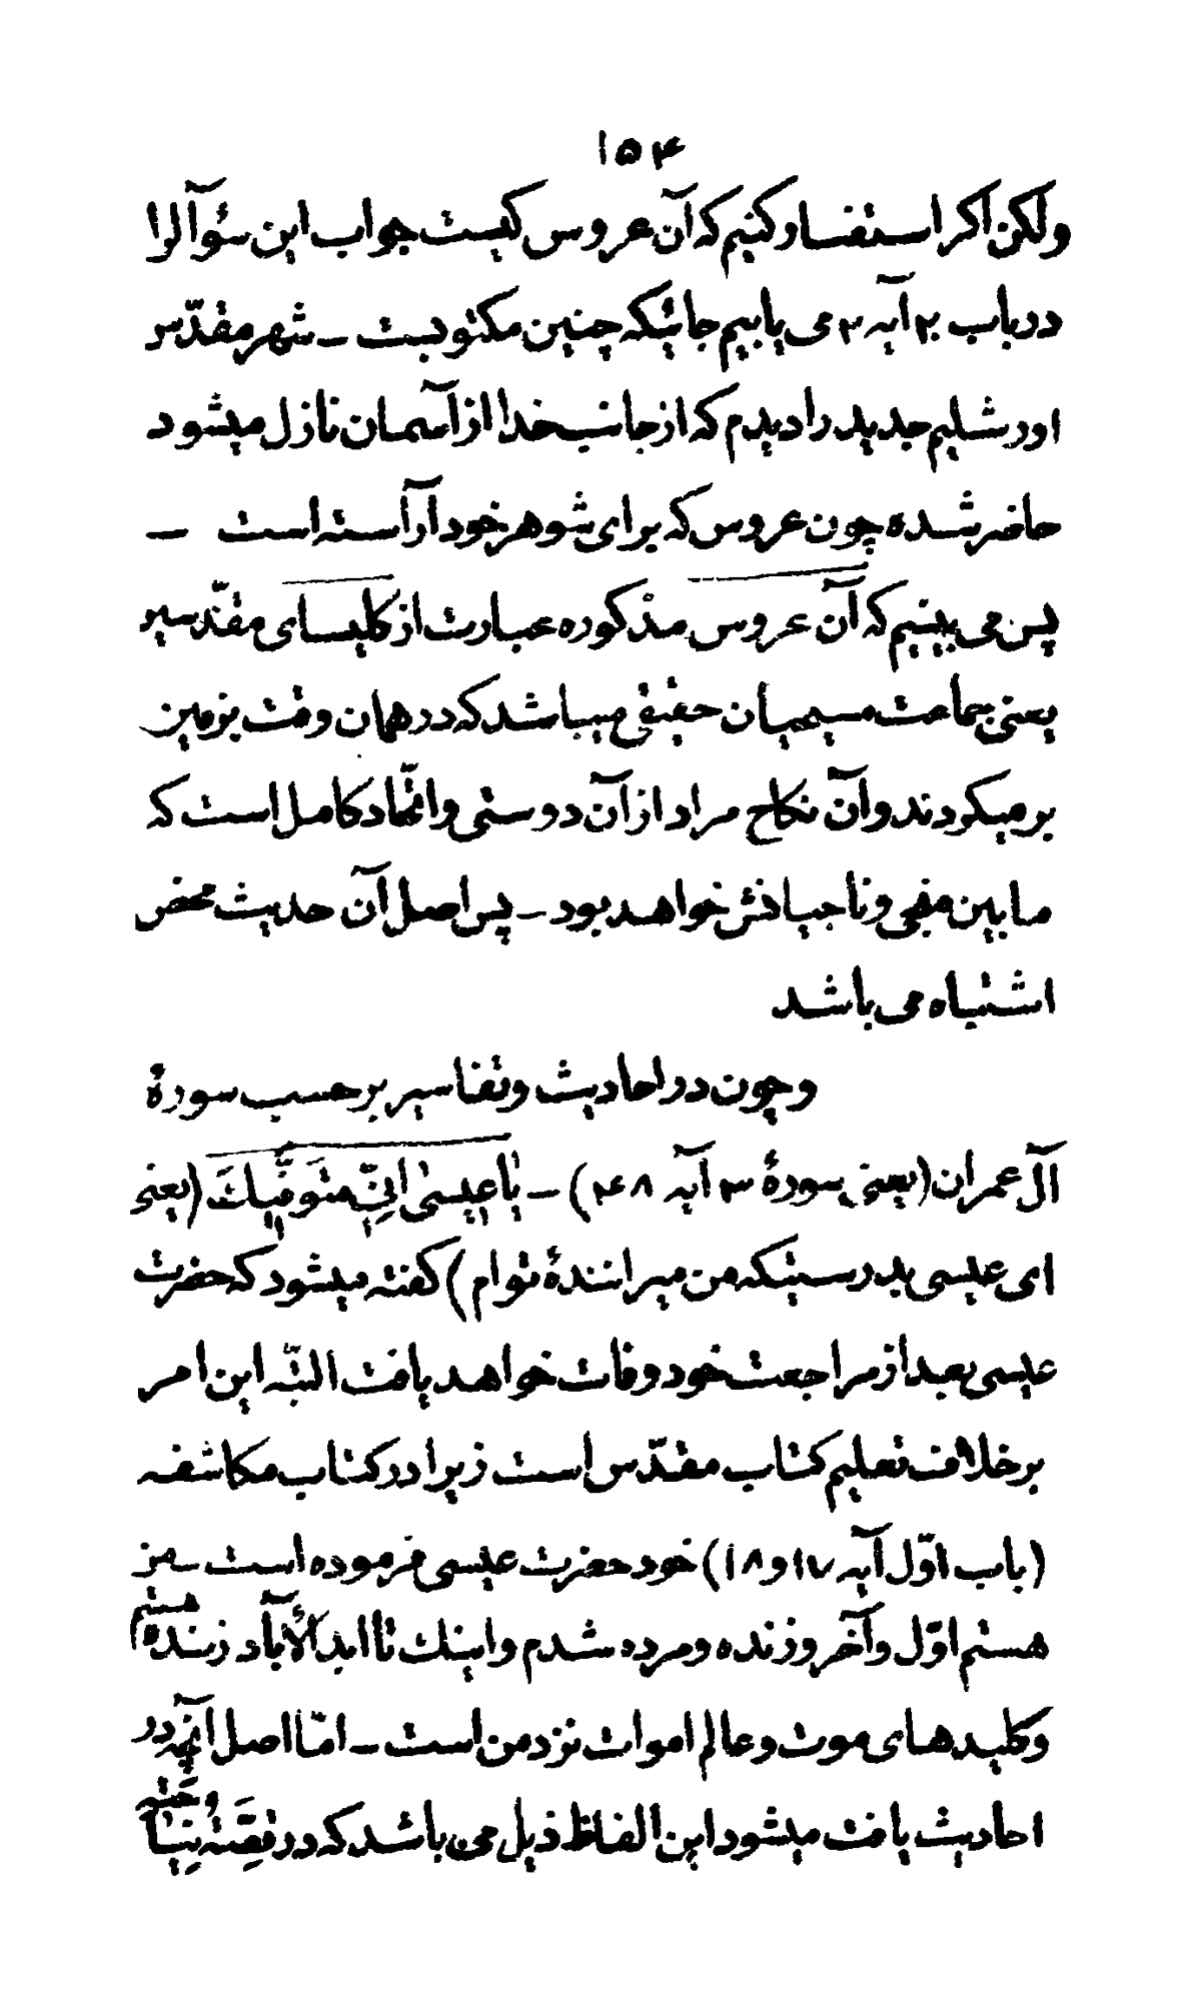 ۱۵۴
ولکن اکر استفسار کنیم که آن عروس کیست جواب این سؤآلرا
در باب ۲۰ آیه ۲ می یابیم جائیکه چنین مکتوبست – شهر مقدّس
اورشلیم جدید را دیدم که از جانب خدا از آسمان نازل میشود
حاضر شده چون عروس که برای شوهر خود آرآسته است –
پس می بینیم که آن عروس مذکوره عبارت از کلیسای مقدّسین
یعنی جماعت مسیحیان حقیقی میباشد که در همان وقت بزمین
برمیکردند و آن نکاح مراد از آن دوستی و اتّحاد کامل است که
ما بین منجی و ناجیانش خواهد بود – پس اصل آن حدیث محض
اشتباه می باشد
و چون در احادیث و تفاسیر بر حسب سورهٔ
آل عمران (یعنی سورهٔ ۳ آیه ۴۸) – یَا عِیسیٰ اِنِّی مُتَوَفِّیكَ (یعنی
ای عیسی بدرستیکه من میرانندهٔ توام) کفته میشود که حضرت
عیسی بعد از مراجعت خود وفات خواهد یافت البتّه این امر
بر خلاف تعلیم کتاب مقدّس است زیرا در کتاب مکاشفه
(باب اوّل آیه ۱۷ و ۱۸) خود حضرت عیسی فرموده است – من
هستم اوّل و آخر و زنده و مرده شدم و اینك تا ابد الأباد زنده هستم
و کلیدهای موت و عالم اموات نزد من است – امّا اصل آنچه در
احادیث یافت میشود این الفاظ ذیل می باشد که در قِصَّهٔ نِیَاحَتِ